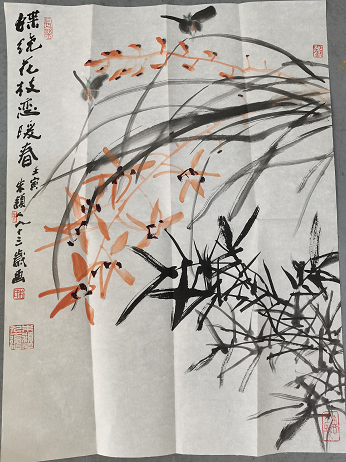 蝶绕花枝恋暖春
壬寅
朱颖人九十三歲画